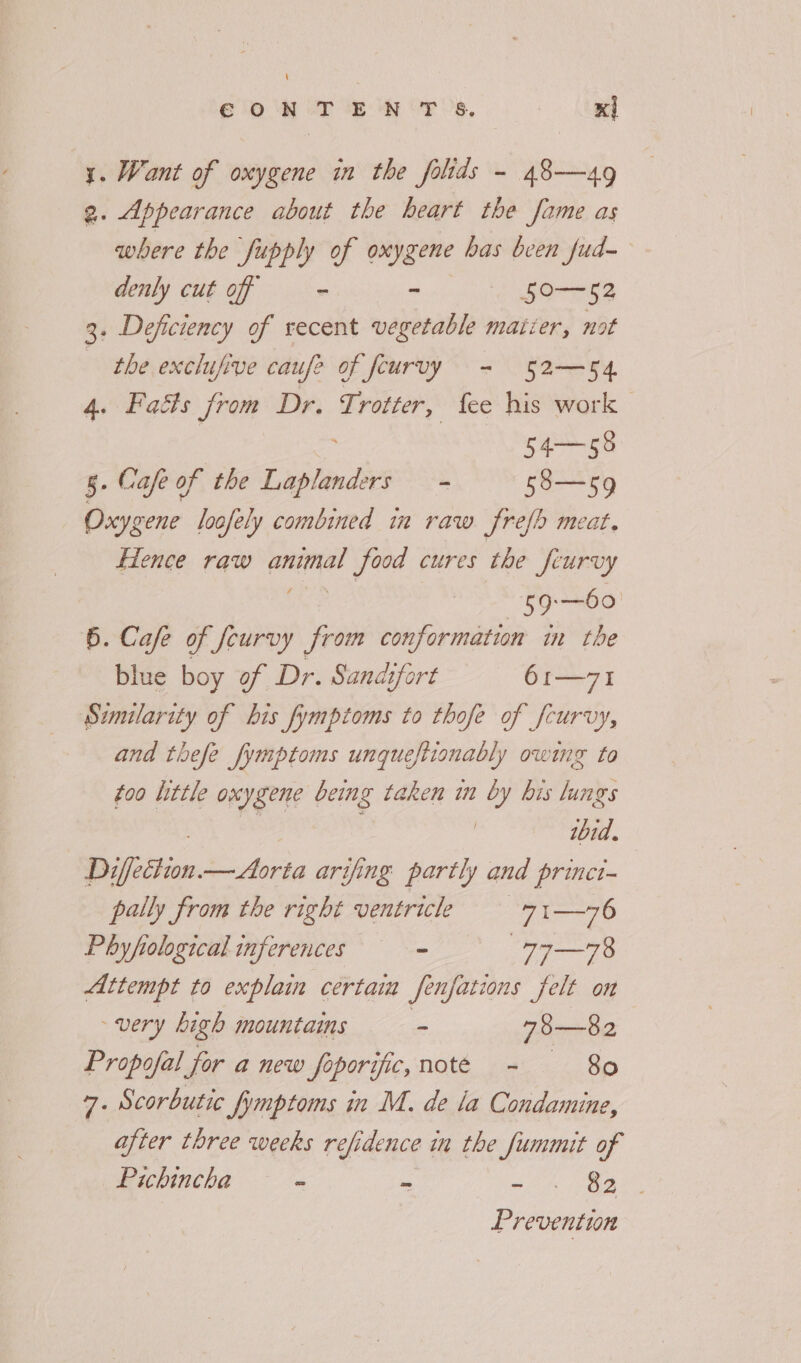 CONTENTS. xj
1. Want of oxygene in the ſolids - 48—49
2. Appearance about the heart the ſame as
where the ſupply of oxygene has been ſud-
denly cut off - - 50—52
3. Deficiency of recent vegetable matter, not
the excluſive cauſe of ſcurvy - 52—54
4. Facts from Dr. Trotter, ſee his work
54—58
5. Caſe of the Laplanders - 58—59
Oxygene looſely combined in raw freſh meat.
Hence raw animal food cures the ſcurvy
59—60
6. Caſe of ſcurvy from conformation in the
blue boy of Dr. Sandifort 61—71
Similarity of his ſymptoms to thoſe of ſcurvy,
and theſe ſymptoms unqueſtionably owing to
too little oxygene being taken in by his lungs
ibid.
Diſſection.—Aorta ariſing partly and princi-
pally from the right ventricle 71—76
Phyſiological inferences - 77—78
Attempt to explain certain ſenſations felt on
very high mountains - 78—82
Propoſal for a new ſoporific, note - 80
7. Scorbutic ſymptoms in M. de la Condamine,
after three weeks reſidence in the ſummit of
Pichincha - - - 82
Prevention